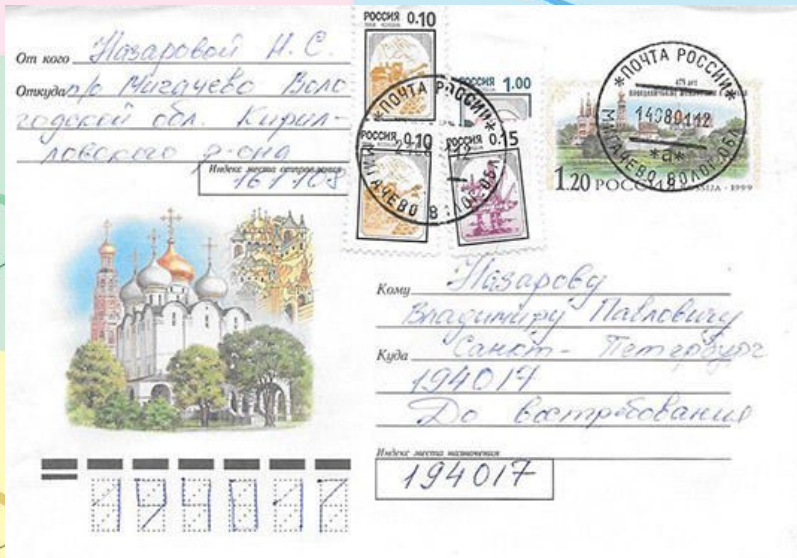 От кого Назаровой Н. С.
Откуда п/о Мигачево Воло
годской обл. Кирил-
ловского р-она
Индекс места отправления
161108
РОССИЯ 0.10
РОССИЯ 1.00
РОССИЯ 0.10
РОССИЯ 0.15
*ПОЧТА РОССИИ*
МИГАЧЕВО ВОЛОГ.ОБЛ
*ПОЧТА РОССИИ*
МИГАЧЕВО ВОЛОГ.ОБЛ
*а*
1.20 РОССИЯ 1999
Кому Назарову
Владимиру Павловичу
Куда Санкт-Петербург
194017
До востребования
Индекс места назначения
194017
194017